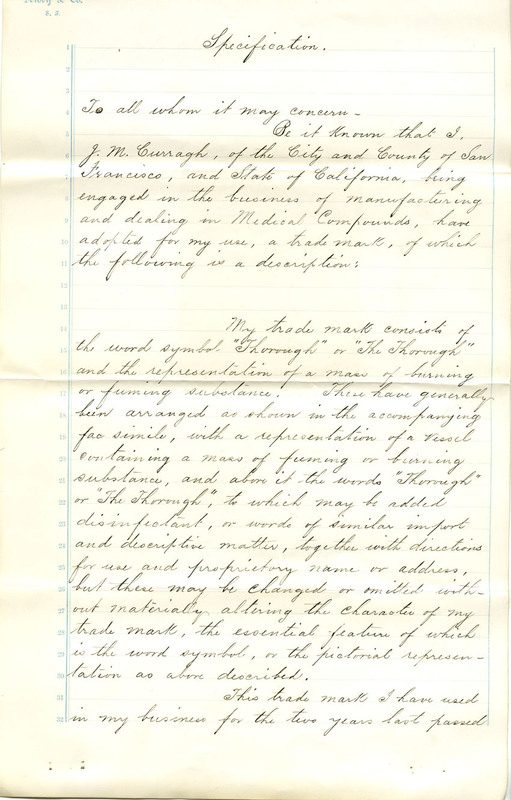 Dewey & Co.
S. F.
Specification.
To all whom it may concern -
Be it Known that I,
J. M. Curragh, of the City and County of San
Francisco, and State of California, being
engaged in the business of manufacturing
and dealing in Medical Compounds, have
adopted for my use, a trade mark, of which
the following is a description:
My trade mark consists of
the word symbol "Thorough" or "The Thorough"
and the representation of a mass of burning
or fuming substance. These have generally
been arranged as shown in the accompanying
fac simile, with a representation of a vessel
containing a mass of fuming or burning
substance, and above it the words "Thorough"
or "The Thorough", to which may be added
disinfectant, or words of similar import
and descriptive matter, together with directions
for use and proprietory name or address,
but these may be changed or omitted with-
out materially altering the character of my
trade mark, the essential feature of which
is the word symbol, or the pictorial represen-
tation as above described.
This trade mark I have used
in my business for the two years last passed